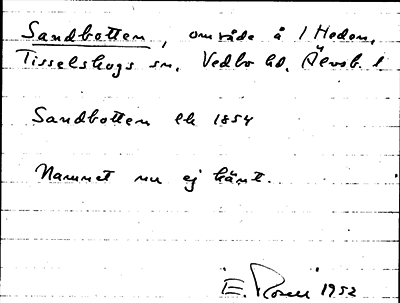 Sandbotten, område å 1 Heden,
Tisselskogs sn, Vedbo hd, Älvsb. l.
Sandbotten ek 1854
Namnet nu ej känt.
E. Rosell 1952